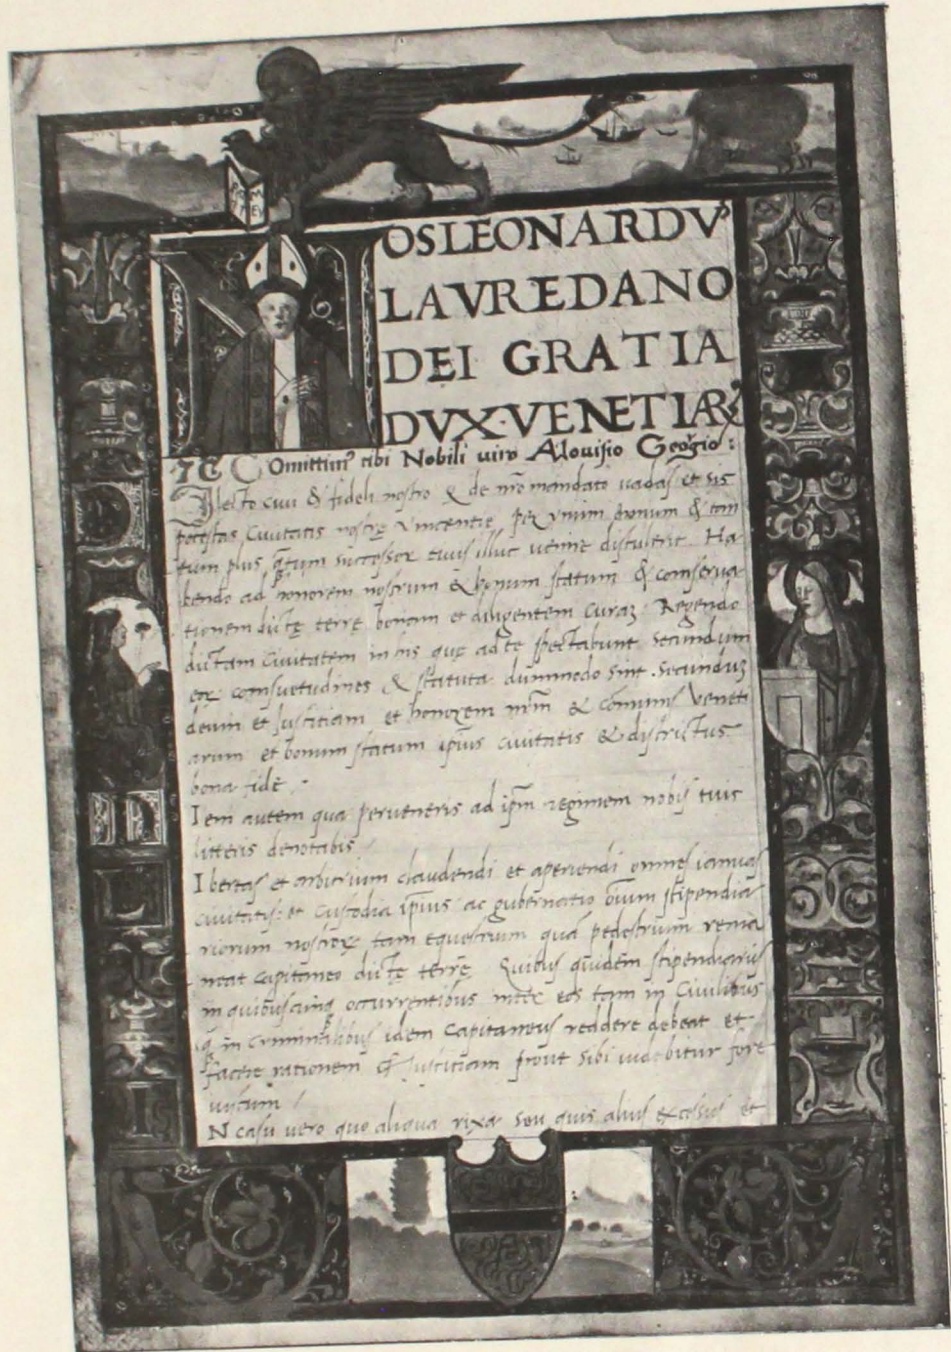 OS LEONARDVˢ
LAVREDANO
DEI GRATIA
DVX·VENETIAR
Comittimꝰ tibi Nobili viro Aloviſio Geoꝛgio:
Dilecto civi & fideli noſtro & de nr̃o mandato vadas et sis
poteſtas Civitatis noſtrę Vincentię per vnum annum & tan
tum plus q̃tum ſucceſſor tuus illuc venire diſtulerit. Ha
bendo ad honorem noſtrum & bonum ſtatum & conſerva
tionem dictę terrę bonam et diligentem curaꝫ. Regendo
dictam civitatem in his quę ad te ſpectabunt secundum
conſuetudines & ſtatuta dummodo sint secunduꝫ
deum et Juſticiam et honorem nr̃m & cõmunis Veneti
arum et bonum ſtatum ip̃ius civitatis & diſtrictus
bona fide.
Iem autem qua perveneris ad ip̃m regimem nobis tuis
litteris denotabis
Ibertas et arbitrium claudendi et aperiendi omnes ianuas
civitatis: et Custodia ip̃ius ac gubernatio oĩum ſtipendia
riorum noſtroꝝ tam equeſtrium quã pedeſtrium rema
neat capitaneo dictę terrę. Quibus quidem ſtipendiariis
in quibuscunq̃ occurrentibus inter eos tam in Civilibus
q̃ in criminalibus idem Capitaneus reddere debeat et
facere rationem & Juſticiam prout sibi videbitur fore
iuſtum
N caſu vero quo aliqua rixa seu quis alius exceſſus et